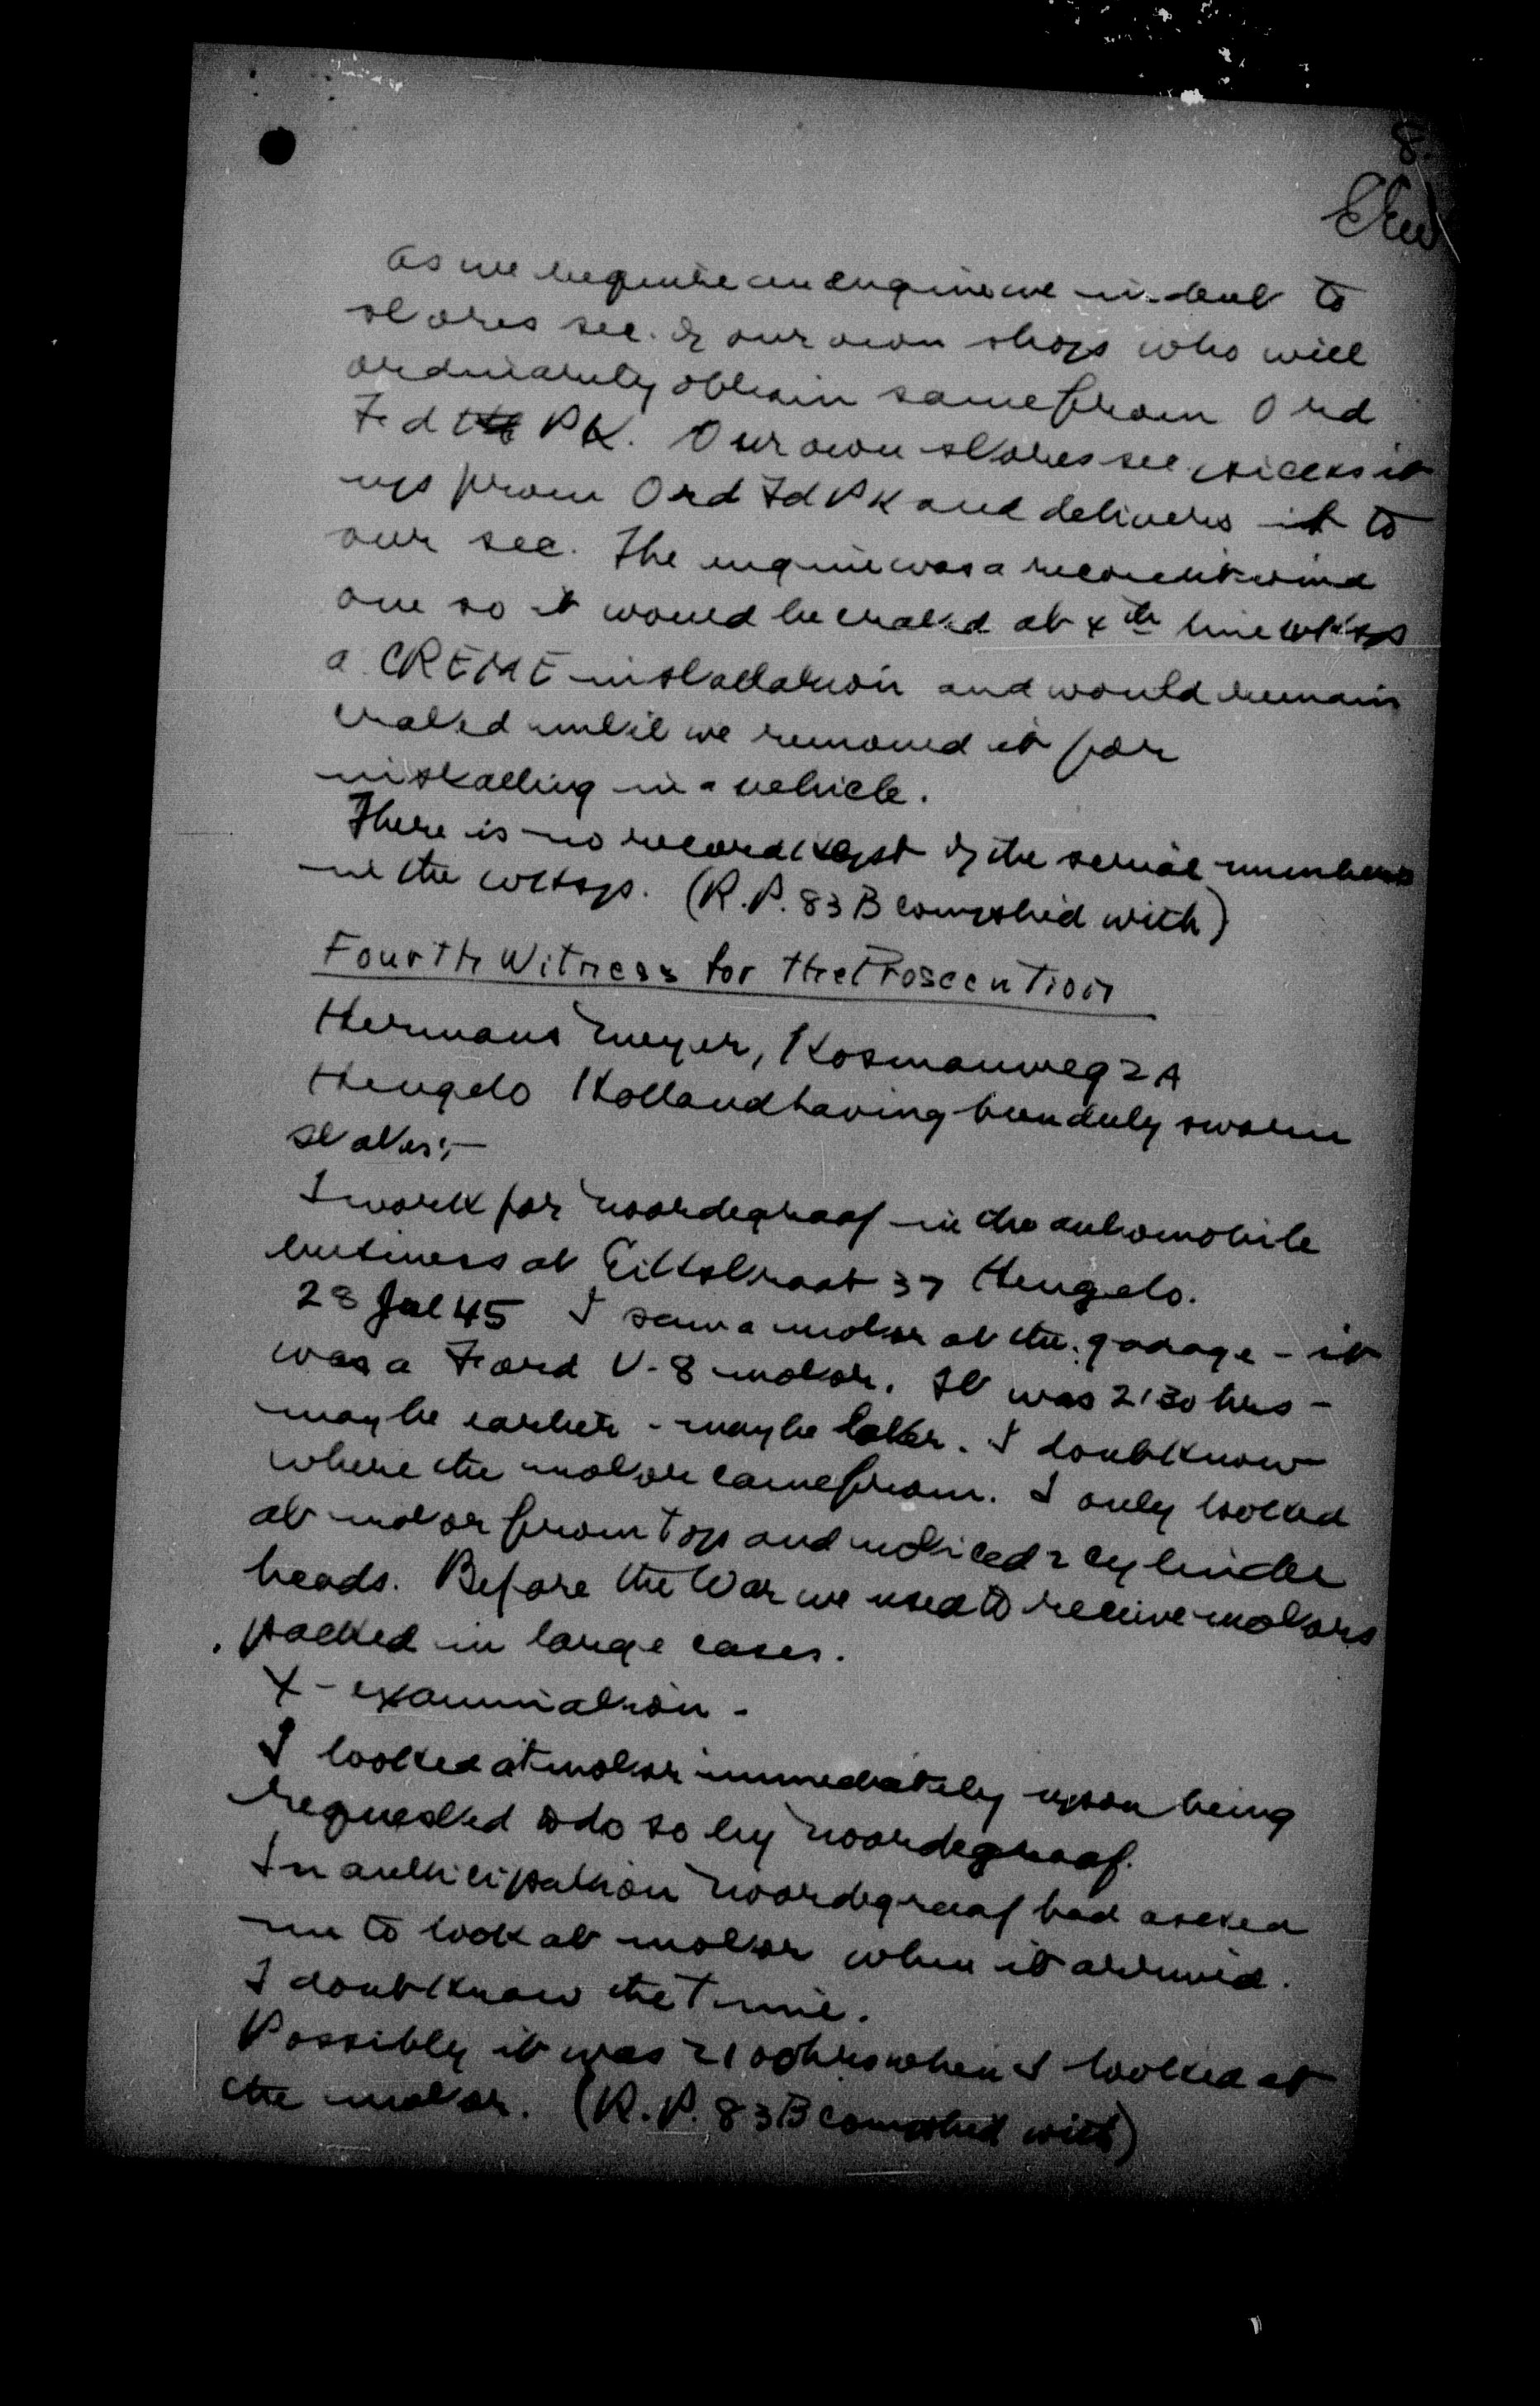 8.
As we require an engine we indent to
stores sec. of our own shops who will
ordinarily obtain same from Ord
Fd Pk. Our own stores sec. picks it
up from Ord Fd Pk and delivers it to
our sec. The engine was a reconditioned
one so it would be crated at 4th line wksps
a CREME installation and would remain
crated until we removed it for
installing in a vehicle.
There is no record kept of the serial numbers
in the wksps. (R.P. 83 B complied with)
Fourth Witness for the Prosecution
Hermans Meyer, Kosmanweg 2A
Hengelo Holland having been duly sworn
states:—
I work for Noordegraaf in the automobile
business at 37 Hengelo.
28 Jul 45 I saw a motor at the garage - it
was a Ford V-8 motor. It was 2130 hrs -
maybe earlier - maybe later. I dont know
where the motor came from. I only looked
at motor from top and noticed 2 cylinder
heads. Before the War we used to receive motors
packed in large cases.
X - examination -
I looked at motor immediately upon being
requested to do so by Noordegraaf.
In anticipation Noordegraaf had asked
me to look at motor when it arrived.
I dont know the time.
Possibly it was 2100 hrs when I looked at
the motor. (R.P. 83 B complied with)